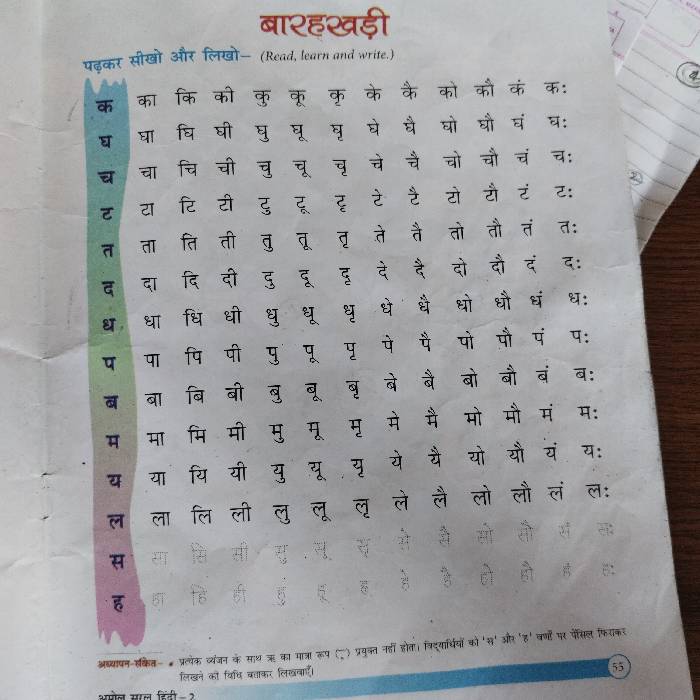 बारहखड़ी
पढ़कर सीखो और लिखो– (Read, learn and write.)
क का कि की कु कू कृ के कै को कौ कं कः
घ घा घि घी घु घू घृ घे घै घो घौ घं घः
च चा चि ची चु चू चृ चे चै चो चौ चं चः
ट टा टि टी टु टू टृ टे टै टो टौ टं टः
त ता ति ती तु तू तृ ते तै तो तौ तं तः
द दा दि दी दु दू दृ दे दै दो दौ दं दः
ध धा धि धी धु धू धृ धे धै धो धौ धं धः
प पा पि पी पु पू पृ पे पै पो पौ पं पः
ब बा बि बी बु बू बृ बे बै बो बौ बं बः
म मा मि मी मु मू मृ मे मै मो मौ मं मः
य या यि यी यु यू यृ ये यै यो यौ यं यः
ल ला लि ली लु लू लृ ले लै लो लौ लं लः
स सा सि सी सु सू सृ से सै सो सौ सं सः
ह हा हि ही हु हू हृ हे है हो हौ हं हः
अध्यापन-संकेत– • प्रत्येक व्यंजन के साथ ऋ का मात्रा रूप ( ृ ) प्रयुक्त नहीं होता। विद्यार्थियों को 'स' और 'ह' वर्णों पर पेंसिल फिराकर
लिखने की विधि बताकर लिखवाएँ।
55
अमोल सरल हिंदी – 2